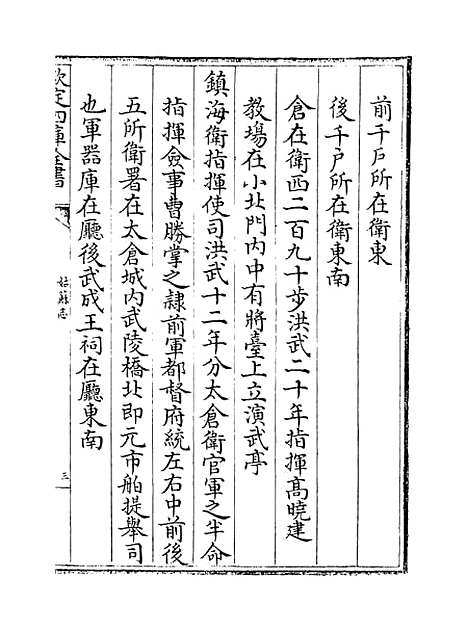 前千戶所在衛東
後千戶所在衛東南
倉在衛西二百九十步洪武二十年指揮高曉建
教場在小北門内中有將臺上立演武亭
鎮海衛指揮使司洪武十二年分太倉衛官軍之半命
指揮僉事曹勝掌之隸前軍都督府統左右中前後
五所衛署在太倉城内武陵橋北即元市舶提舉司
也軍器庫在廳後武成王祠在廳東南
欽定四庫全書
姑蘇志
三